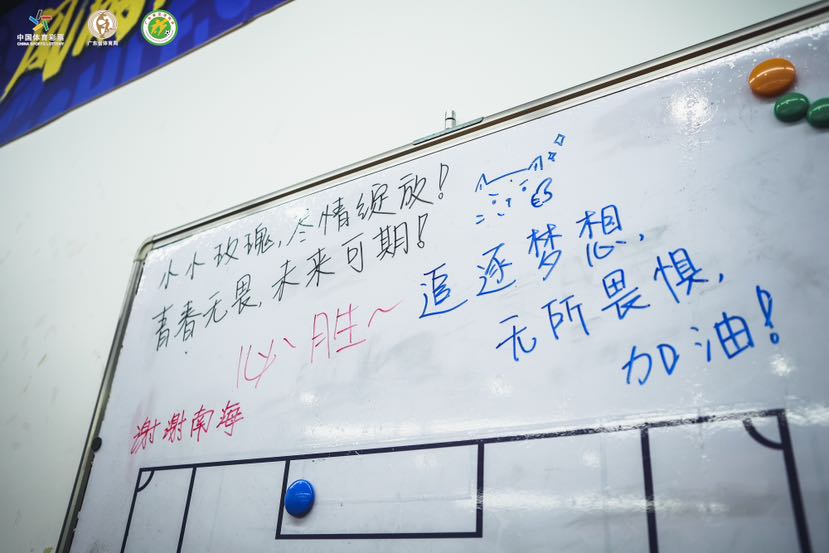 中国体育彩票
CHINA SPORTS LOTTERY
广东省体育局
小小玫瑰,尽情绽放!
青春无畏,未来可期!
必胜~
追逐梦想,
无所畏惧,
加油!
谢谢南海